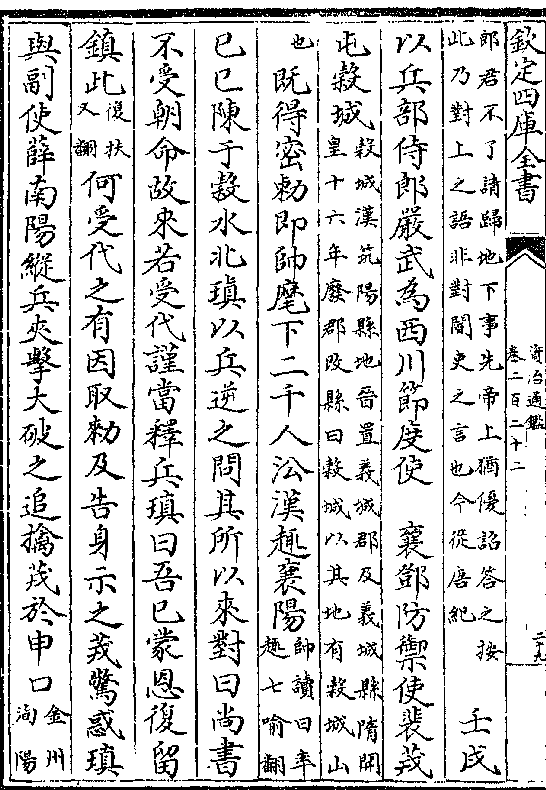 欽定四庫全書
資治通鑑
卷二百二十二
二十九
郎君不了請歸地下事先帝上猶優詔答之按
此乃對上之語非對閽吏之言也今從唐紀
壬戌
以兵部侍郎嚴武為西川節度使 襄鄧防禦使裴茙
屯榖城
榖城漢筑陽縣地晉置義城郡及義城縣隋開
皇十六年廢郡改縣曰榖城以其地有榖城山
也
既得密勅即帥麾下二千人㳂漢趣襄陽
帥讀曰率
趣七喻翻
己巳陳于榖水北瑱以兵逆之問其所以來對曰尚書
不受朝命故來若受代謹當釋兵瑱曰吾已蒙恩復留
鎮此
復扶
又翻
何受代之有因取勅及告身示之茙驚惑瑱
與副使薛南陽縱兵夾擊大破之追擒茙於申口
金州
洵陽